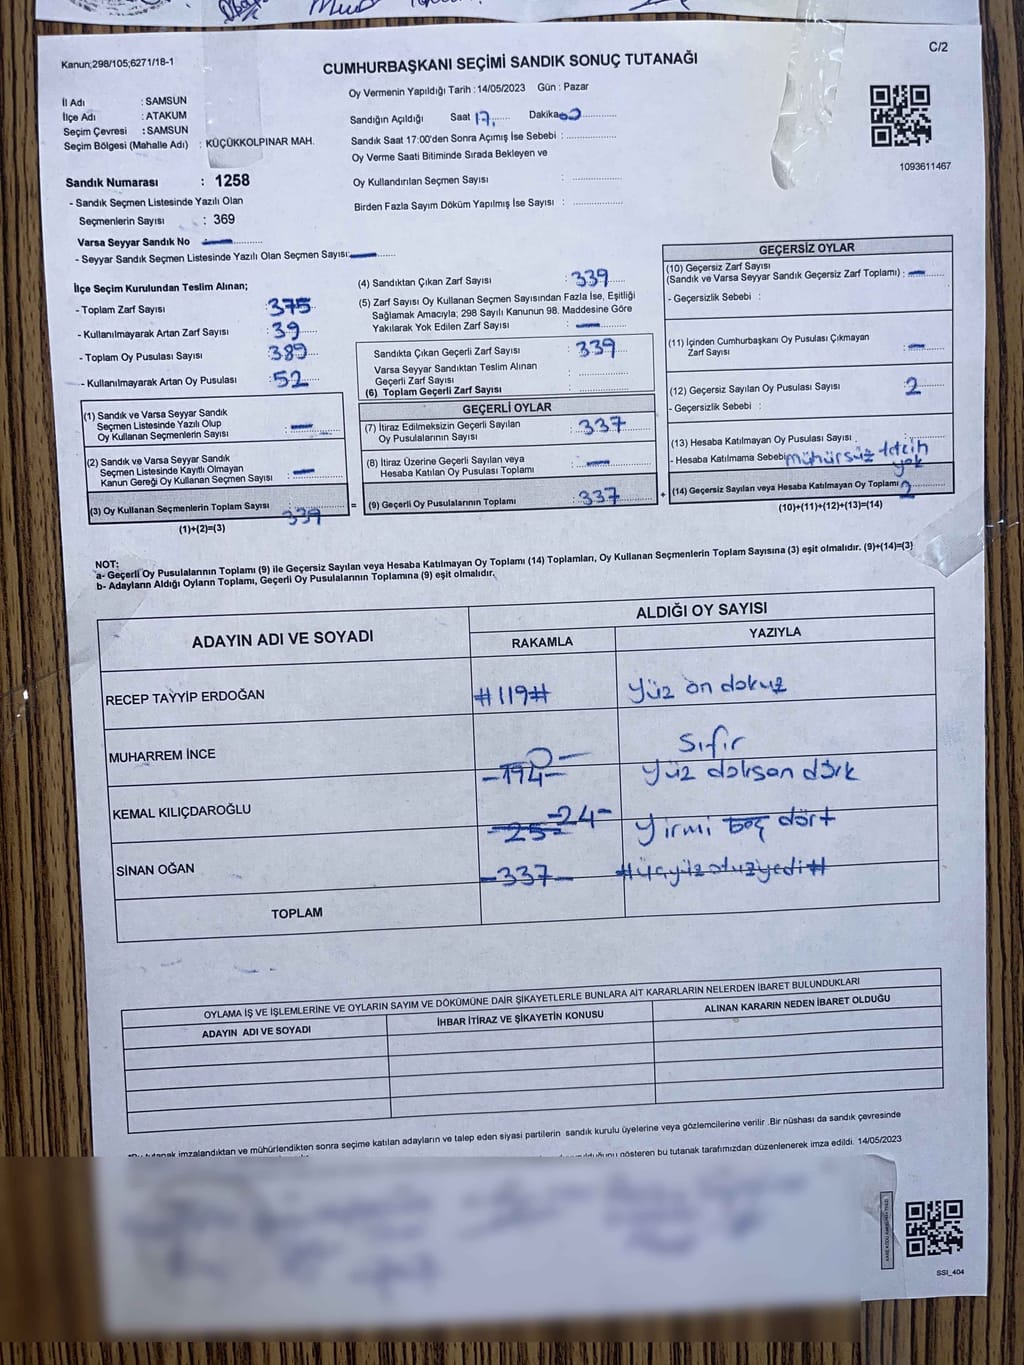 C/2
Kanun;298/105;6271/18-1
CUMHURBAŞKANI SEÇİMİ SANDIK SONUÇ TUTANAĞI
Oy Vermenin Yapıldığı Tarih : 14/05/2023 Gün : Pazar
İl Adı : SAMSUN
İlçe Adı : ATAKUM
Seçim Çevresi : SAMSUN
Seçim Bölgesi (Mahalle Adı) : KÜÇÜKKOLPINAR MAH.
Sandığın Açıldığı Saat 17, Dakika 00
Sandık Saat 17:00'den Sonra Açımış İse Sebebi :
Oy Verme Saati Bitiminde Sırada Bekleyen ve
Oy Kullandırılan Seçmen Sayısı :
Birden Fazla Sayım Döküm Yapılmış İse Sayısı :
1093611467
Sandık Numarası : 1258
- Sandık Seçmen Listesinde Yazılı Olan
Seçmenlerin Sayısı : 369
Varsa Seyyar Sandık No : —
- Seyyar Sandık Seçmen Listesinde Yazılı Olan Seçmen Sayısı: —
İlçe Seçim Kurulundan Teslim Alınan;
- Toplam Zarf Sayısı : 375
- Kullanılmayarak Artan Zarf Sayısı : 39
- Toplam Oy Pusulası Sayısı : 389
- Kullanılmayarak Artan Oy Pusulası : 52
(1) Sandık ve Varsa Seyyar Sandık
Seçmen Listesinde Yazılı Olup
Oy Kullanan Seçmenlerin Sayısı : —
(2) Sandık ve Varsa Seyyar Sandık
Seçmen Listesinde Kayıtlı Olmayan
Kanun Gereği Oy Kullanan Seçmen Sayısı : —
(3) Oy Kullanan Seçmenlerin Toplam Sayısı : 339
(1)+(2)=(3)
=
(4) Sandıktan Çıkan Zarf Sayısı : 339
(5) Zarf Sayısı Oy Kullanan Seçmen Sayısından Fazla İse, Eşitliği
Sağlamak Amacıyla; 298 Sayılı Kanunun 98. Maddesine Göre
Yakılarak Yok Edilen Zarf Sayısı : —
Sandıkta Çıkan Geçerli Zarf Sayısı : 339
Varsa Seyyar Sandıktan Teslim Alınan
Geçerli Zarf Sayısı :
(6) Toplam Geçerli Zarf Sayısı :
GEÇERLİ OYLAR
(7) İtiraz Edilmeksizin Geçerli Sayılan
Oy Pusulalarının Sayısı : 337
(8) İtiraz Üzerine Geçerli Sayılan veya
Hesaba Katılan Oy Pusulası Toplamı : —
(9) Geçerli Oy Pusulalarının Toplamı : 337
+
GEÇERSİZ OYLAR
(10) Geçersiz Zarf Sayısı
(Sandık ve Varsa Seyyar Sandık Geçersiz Zarf Toplamı) : —
- Geçersizlik Sebebi :
(11) İçinden Cumhurbaşkanı Oy Pusulası Çıkmayan
Zarf Sayısı : —
(12) Geçersiz Sayılan Oy Pusulası Sayısı : 2
- Geçersizlik Sebebi :
(13) Hesaba Katılmayan Oy Pusulası Sayısı :
- Hesaba Katılmama Sebebi mühürsüz tercih
yok
(14) Geçersiz Sayılan veya Hesaba Katılmayan Oy Toplamı : 2
(10)+(11)+(12)+(13)=(14)
NOT:
a- Geçerli Oy Pusulalarının Toplamı (9) ile Geçersiz Sayılan veya Hesaba Katılmayan Oy Toplamı (14) Toplamları, Oy Kullanan Seçmenlerin Toplam Sayısına (3) eşit olmalıdır. (9)+(14)=(3)
b- Adayların Aldığı Oyların Toplamı, Geçerli Oy Pusulalarının Toplamına (9) eşit olmalıdır.
ADAYIN ADI VE SOYADI
ALDIĞI OY SAYISI
RAKAMLA YAZIYLA
RECEP TAYYİP ERDOĞAN #119# Yüz on dokuz
MUHARREM İNCE 0 — Sıfır
KEMAL KILIÇDAROĞLU -194- Yüz doksan dört
SİNAN OĞAN -25- -24- Yirmi beş dört
TOPLAM -337- #üçyüzotuzyedi#
OYLAMA İŞ VE İŞLEMLERİNE VE OYLARIN SAYIM VE DÖKÜMÜNE DAİR ŞİKAYETLERLE BUNLARA AİT KARARLARIN NELERDEN İBARET BULUNDUKLARI
ADAYIN ADI VE SOYADI İHBAR İTİRAZ VE ŞİKAYETİN KONUSU ALINAN KARARIN NEDEN İBARET OLDUĞU
tutanak imzalandıktan ve mühürlendikten sonra seçime katılan adayların ve talep eden siyasi partilerin sandık kurulu üyelerine veya gözlemcilerine verilir .Bir nüshası da sandık çevresinde
gösteren bu tutanak tarafımızdan düzenlenerek imza edildi. 14/05/2023
SSI_404